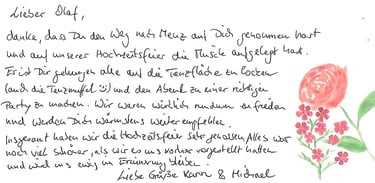 Lieber Olaf,
danke, dass Du den Weg nach Mainz auf Dich genommen hast
und auf unserer Hochzeitsfeier die Musik aufgelegt hast.
Es ist Dir gelungen alle auf die Tanzfläche zu locken
(auch die Tanzmuffel :)) und den Abend zu einer richtigen
Party zu machen. Wir waren wirklich rundum zufrieden
und werden Dich wärmstens weiter empfehlen.
Insgesamt haben wir die Hochzeitsfeier sehr genossen. Alles war
noch viel schöner, als wir es uns vorher vorgestellt hatten
und wird uns ewig in Erinnerung bleiben.
Liebe Grüße Karin & Michael